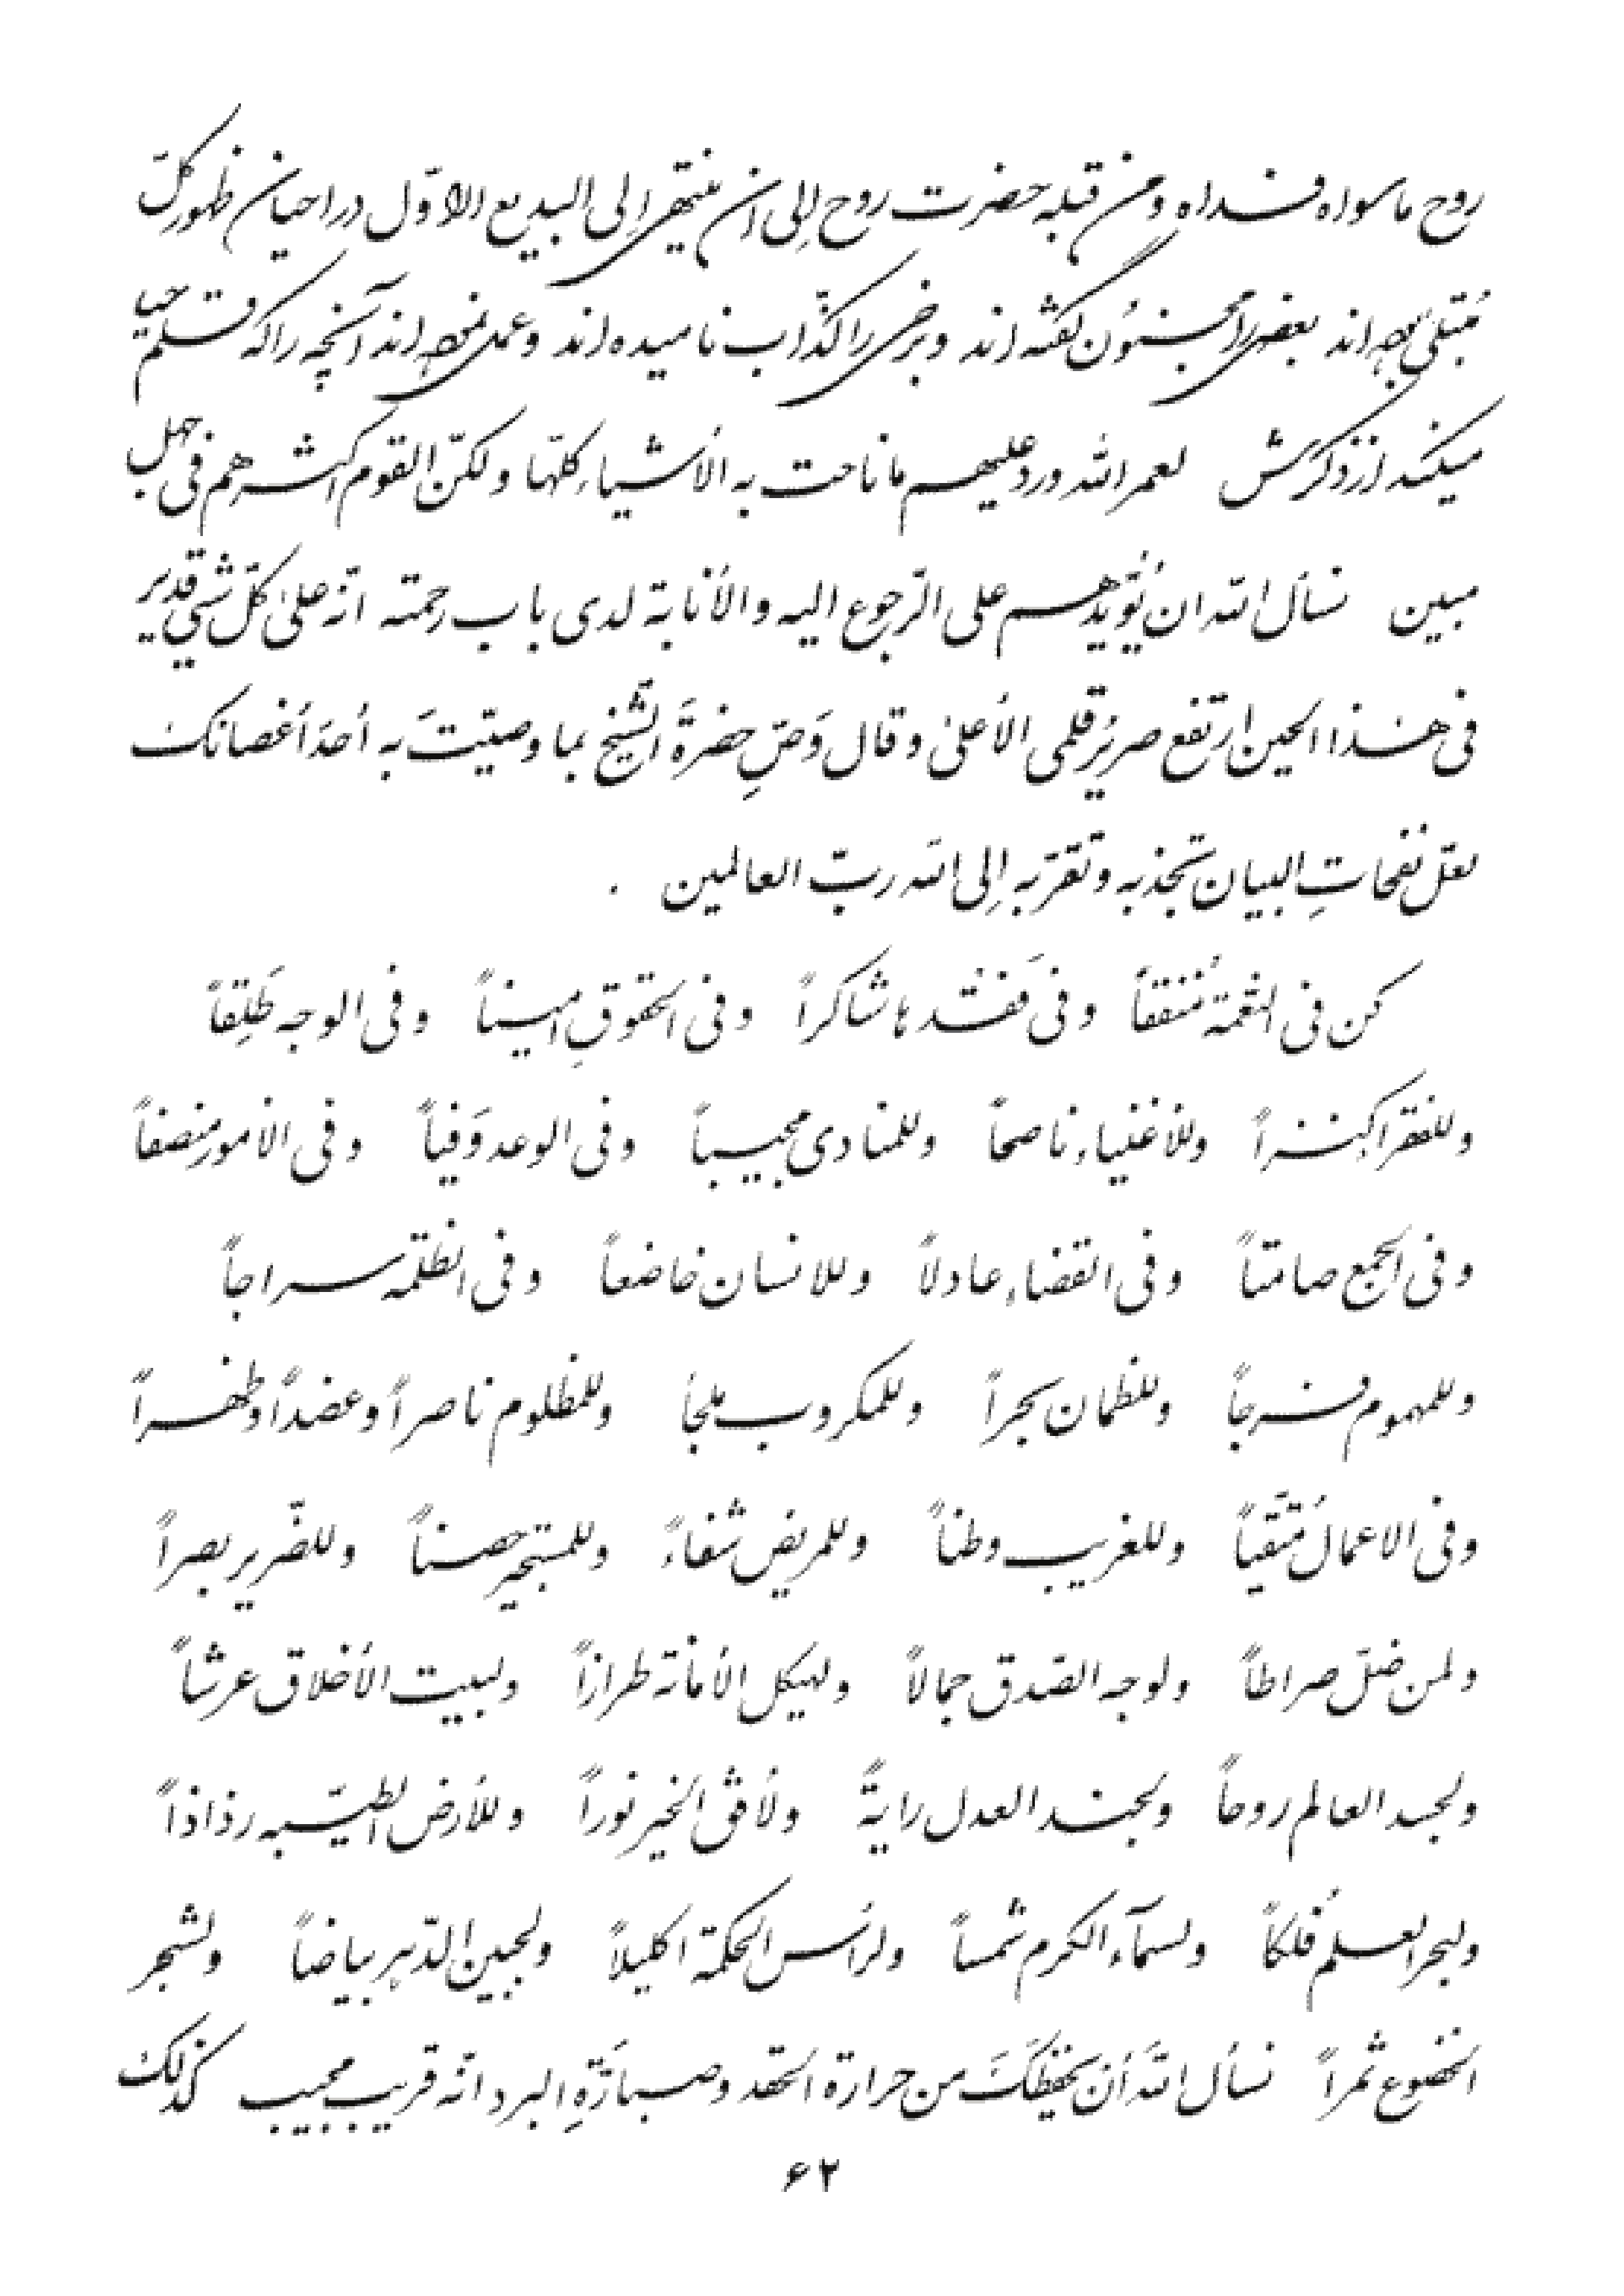 روح ماسواه فداه و من قبله حضرت روح إلی ان ینتهی إلی البدیع الاوّل در احیان ظهور کلّ
مُبتلیٰ بوده‌اند بعضی را مجنُون گفته‌اند و برخی را کذّاب نامیده‌اند و عمل نموده‌اند آنچه را که قلم حیا
میکند از ذکرش لعمر الله ورد علیهم ما ناحت به الأشیاء کلّها ولکنّ القوم اکثرهم فی جهل
مبین نسأل الله ان یُؤیّدهم علی الرّجوع الیه والأنابة لدی باب رحمته انّه علیٰ کلّ شیٍ قدیر
فی هٰذا الحین ارتفع صریرُ قلمی الأعلیٰ و قال وَصِّ حضرةَ الشّیخ بما وصّیتَ به أحدَ أغصانک
لعلّ نفحاتِ البیان تجذبه و تقرّبه إلی الله ربّ العالمین .
کن فی النّعمة مُنفقاً و فی فَقْدها شاکراً و فی الحقوقِ امیناً و فی الوجه طَلِقاً
وللفقراء کنزاً وللأغنیاء ناصحاً وللمنادی مجیباً و فی الوعد وَفیاً و فی الأمور منصفاً
و فی الجمع صامتاً و فی القضاء عادلاً وللانسان خاضعاً و فی الظّلمة سراجاً
وللمهموم فرجاً وللظمان بحراً وللمکروب ملجأ وللمظلوم ناصراً و عضداً و ظهراً
و فی الاعمال مُتّقیاً وللغریب وطناً وللمریض شفاءً وللمستجیر حصناً وللضّریر بصراً
ولمن ضلّ صراطاً ولوجه الصّدق جمالاً ولهیکل الأمانة طرازاً ولبیت الأخلاق عرشاً
ولجسد العالم روحاً ولجند العدل رایةً ولأفق الخیر نوراً وللأرض الطیّبه رذاذاً
ولبحر العلم فُلکاً ولسمآء الکرم شمساً ولرأس الحکمة اکلیلاً ولجبین الدّهر بیاضاً ولشجر
الخضوع ثمراً نسأل الله أن یحفظکَ من حرارة الحقد و صبارّةِ البرد انّه قریب مجیب کذلک
۶۲